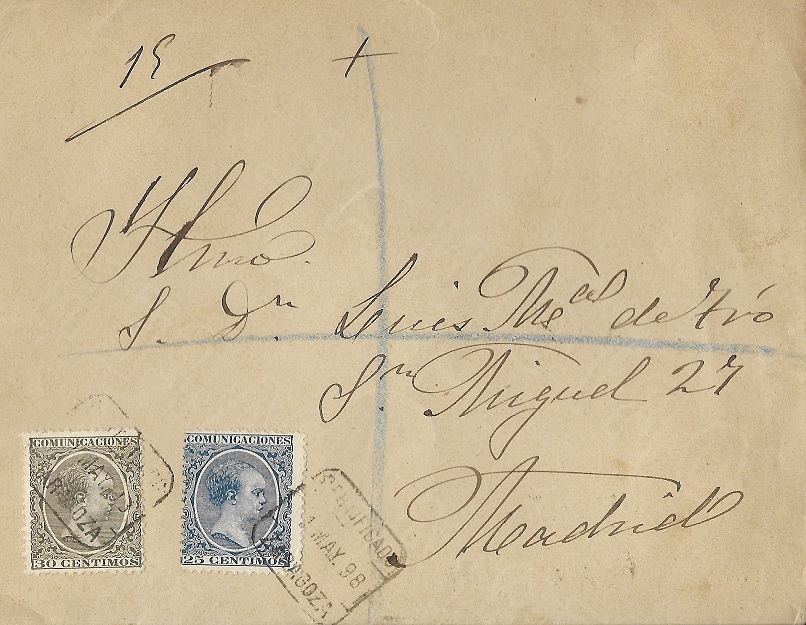 15 +
Ilmo.
S. Dn Luis Mcal de Iró
Sn Miguel 27
Madrid
COMUNICACIONES COMUNICACIONES
30 CENTIMOS 25 CENTIMOS
MAY. 9
GOZA
CERTIFICADO
1 MAY. 98
AGOZA